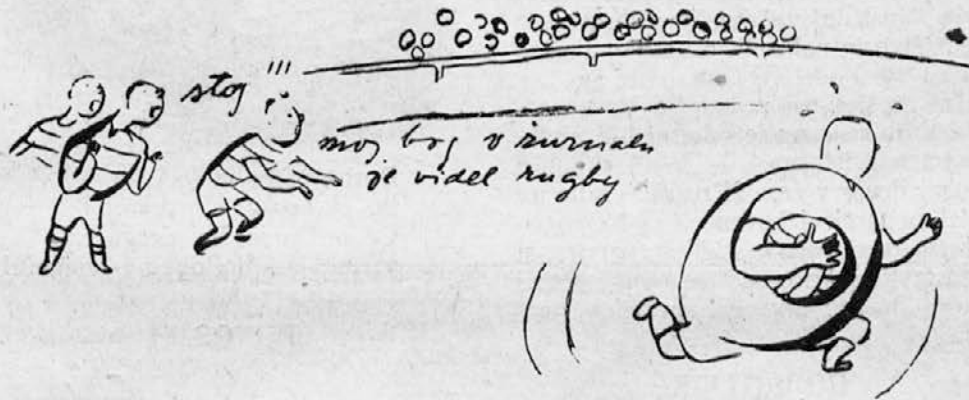 stoj !!!
moj bog v žurnalu
je videl rugby